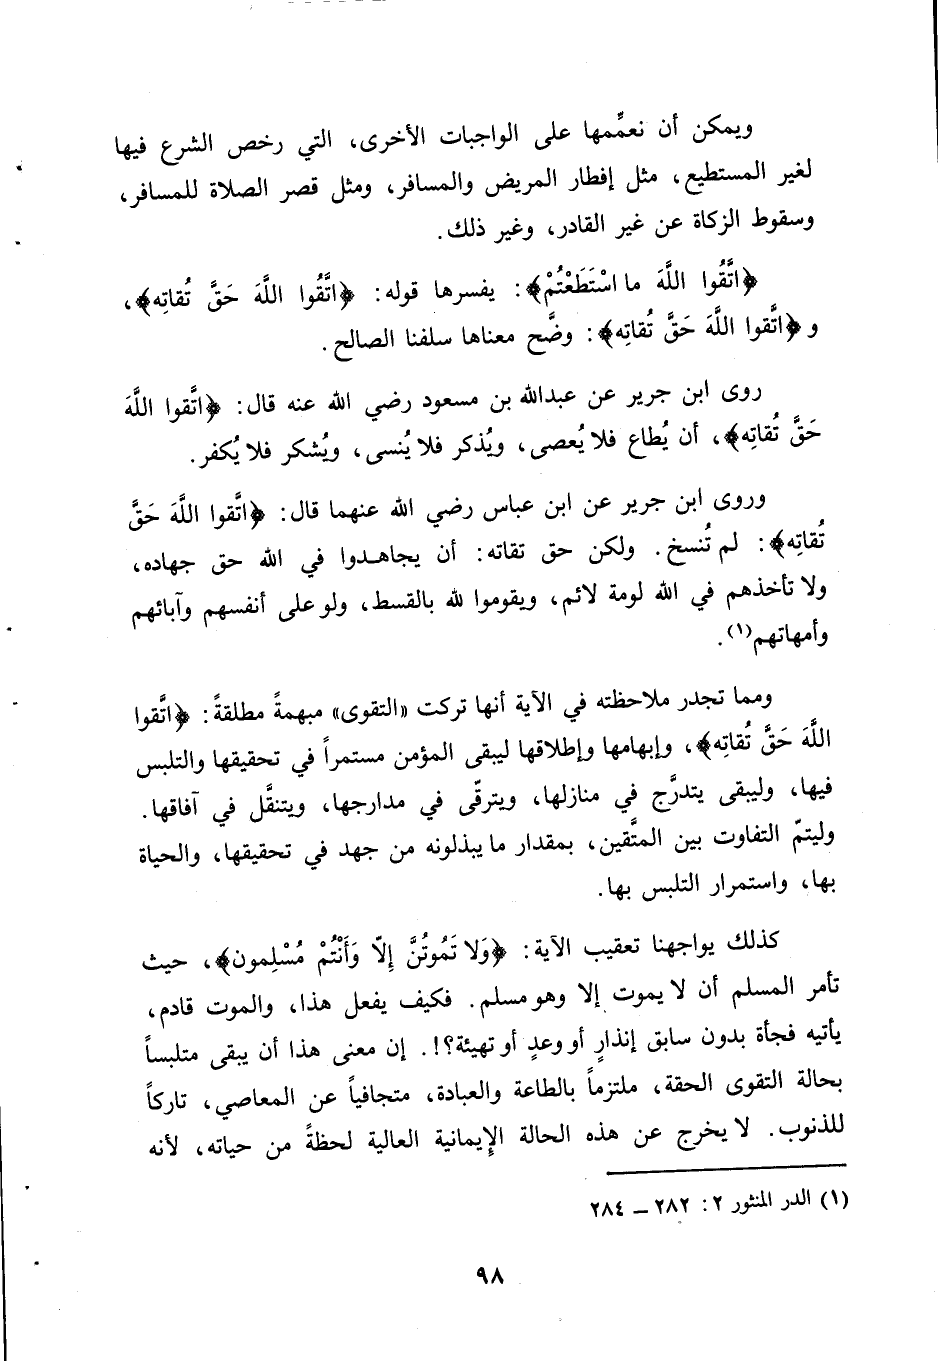 ويمكن أن نعمِّمها على الواجبات الأخرى، التي رخص الشرع فيها
لغير المستطيع، مثل إفطار المريض والمسافر، ومثل قصر الصلاة للمسافر،
وسقوط الزكاة عن غير القادر، وغير ذلك.
﴿اتَّقُوا اللَّهَ ما اسْتَطَعْتُمْ﴾: يفسرها قوله: ﴿اتَّقُوا اللَّهَ حَقَّ تُقاتِه﴾،
و﴿اتَّقوا اللَّهَ حَقَّ تُقاتِه﴾: وضَّح معناها سلفنا الصالح.
روى ابن جرير عن عبدالله بن مسعود رضي الله عنه قال: ﴿اتَّقوا اللَّهَ
حَقَّ تُقاتِه﴾، أن يُطاع فلا يُعصى، ويُذكر فلا يُنسى، ويُشكر فلا يُكفر.
وروى ابن جرير عن ابن عباس رضي الله عنهما قال: ﴿اتَّقوا اللَّهَ حَقَّ
تُقاتِه﴾: لم تُنسخ. ولكن حق تقاته: أن يجاهدوا في الله حق جهاده،
ولا تأخذهم في الله لومة لائم، ويقوموا لله بالقسط، ولو على أنفسهم وآبائهم
وأمهاتهم(١).
ومما تجدر ملاحظته في الآية أنها تركت «التقوى» مبهمةً مطلقةً: ﴿اتَّقوا
اللَّهَ حَقَّ تُقاتِه﴾، وإبهامها وإطلاقها ليبقى المؤمن مستمراً في تحقيقها والتلبس
فيها، وليبقى يتدرَّج في منازلها، ويترقّى في مدارجها، ويتنقَّل في آفاقها.
وليتمّ التفاوت بين المتَّقين، بمقدار ما يبذلونه من جهد في تحقيقها، والحياة
بها، واستمرار التلبس بها.
كذلك يواجهنا تعقيب الآية: ﴿وَلا تَمُوتُنَّ إِلّا وَأَنْتُمْ مُسْلِمون﴾، حيث
تأمر المسلم أن لا يموت إلا وهو مسلم. فكيف يفعل هذا، والموت قادم،
يأتيه فجأة بدون سابق إنذارٍ أو وعدٍ أو تهيئة؟!. إن معنى هذا أن يبقى متلبساً
بحالة التقوى الحقة، ملتزماً بالطاعة والعبادة، متجافياً عن المعاصي، تاركاً
للذنوب. لا يخرج عن هذه الحالة الإيمانية العالية لحظةً من حياته، لأنه
(١) الدر المنثور ٢: ٢٨٢ – ٢٨٤
٩٨